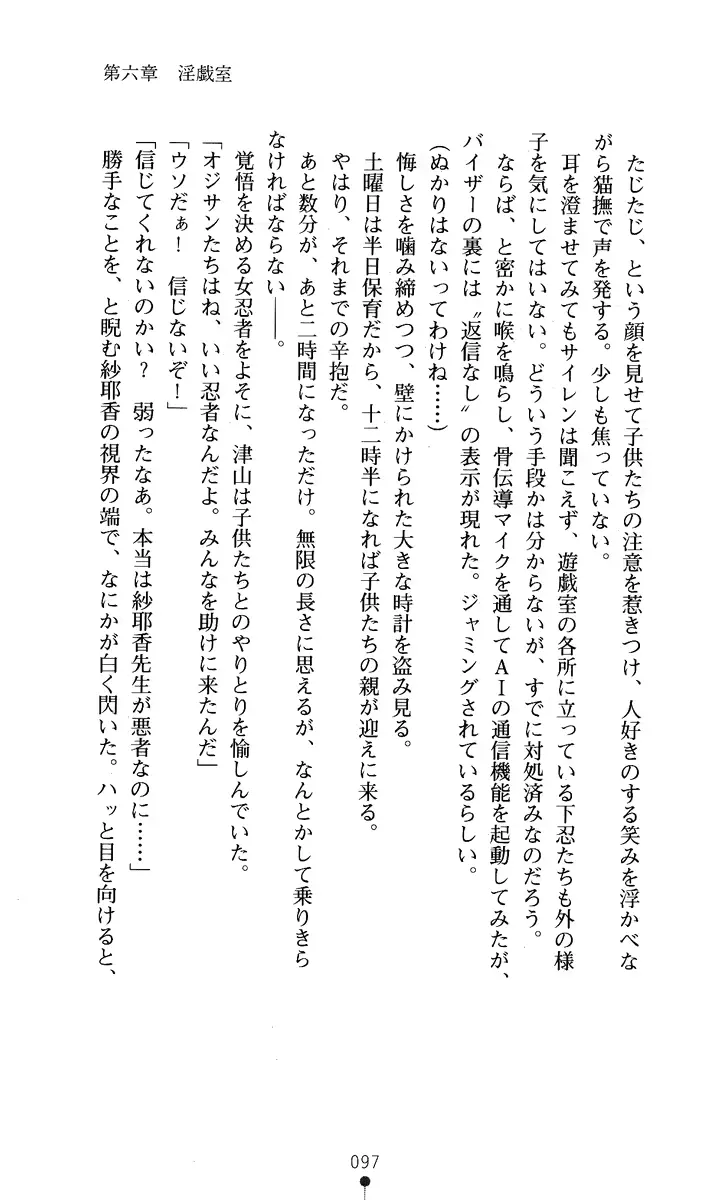 第六章　淫戯室
たじたじ、という顔を見せて子供たちの注意を惹きつけ、人好きのする笑みを浮かべな
がら猫撫で声を発する。少しも焦っていない。
耳を澄ませてみてもサイレンは聞こえず、遊戯室の各所に立っている下忍たちも外の様
子を気にしてはいない。どういう手段かは分からないが、すでに対処済みなのだろう。
ならば、と密かに喉を鳴らし、骨伝導マイクを通してＡＩの通信機能を起動してみたが、
バイザーの裏には〝返信なし〟の表示が現れた。ジャミングされているらしい。
（ぬかりはないってわけね……）
悔しさを噛み締めつつ、壁にかけられた大きな時計を盗み見る。
土曜日は半日保育だから、十二時半になれば子供たちの親が迎えに来る。
やはり、それまでの辛抱だ。
あと数分が、あと二時間になっただけ。無限の長さに思えるが、なんとかして乗りきら
なければならない――。
覚悟を決める女忍者をよそに、津山は子供たちとのやりとりを愉しんでいた。
「オジサンたちはね、いい忍者なんだよ。みんなを助けに来たんだ」
「ウソだぁ！　信じないぞ！」
「信じてくれないのかい？　弱ったなあ。本当は紗耶香先生が悪者なのに……」
勝手なことを、と睨む紗耶香の視界の端で、なにかが白く閃いた。ハッと目を向けると、
097